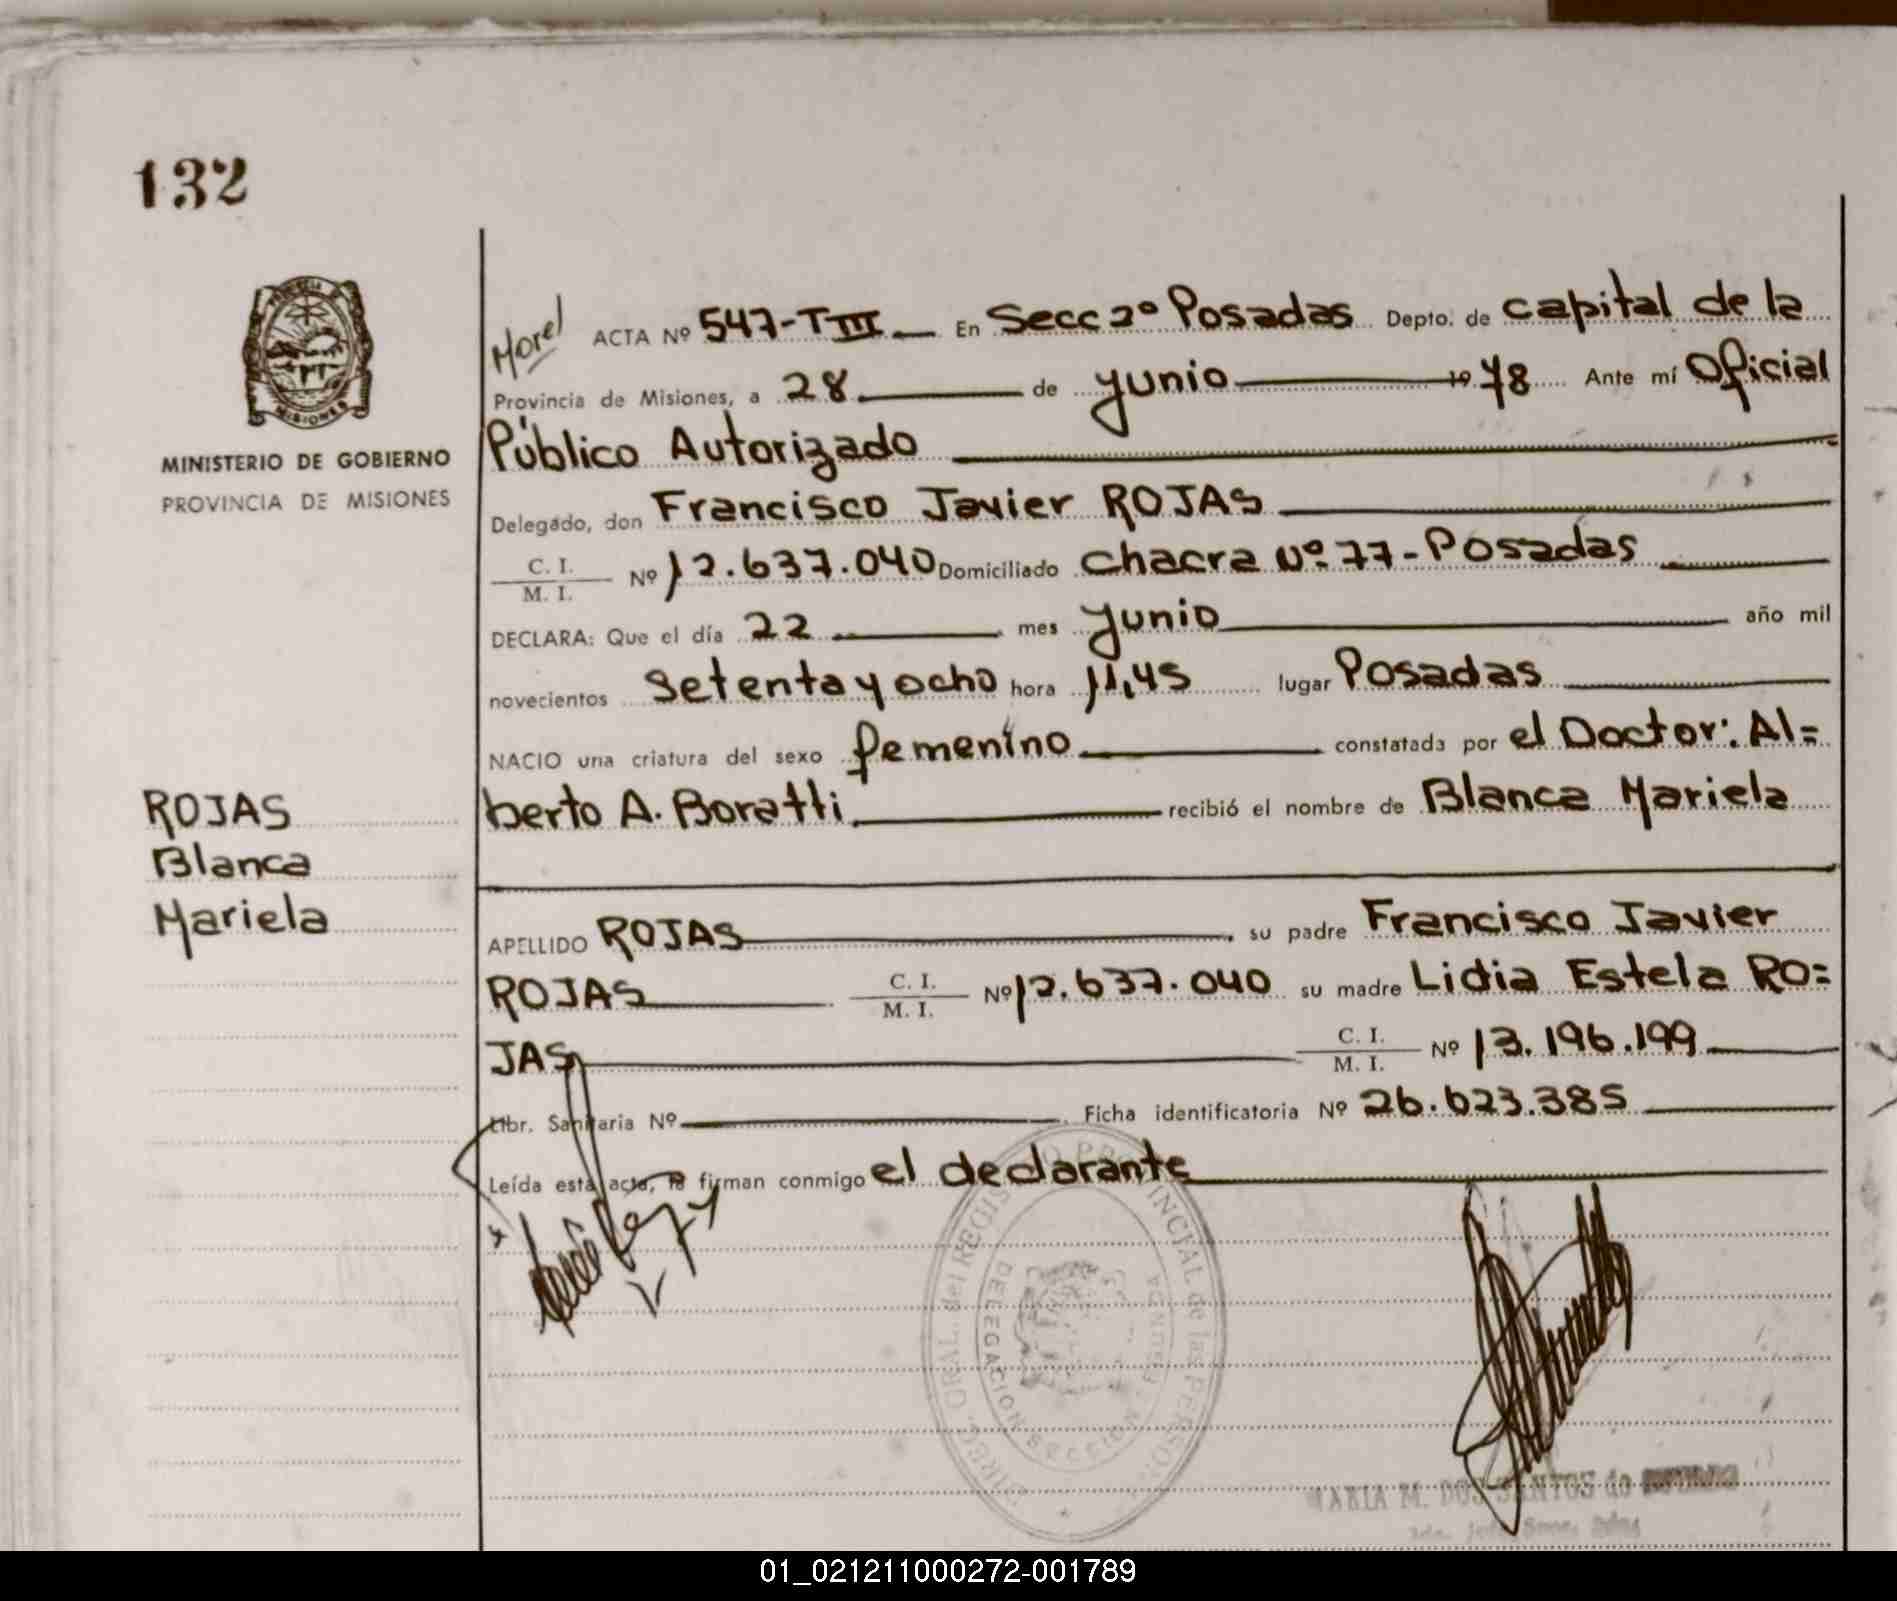 132
MINISTERIO DE GOBIERNO
PROVINCIA DE MISIONES
ROJAS
Blanca
Mariela
Morel ACTA Nº 547-TIII En Secc 2º Posadas Depto. de capital de la
Provincia de Misiones, a 28 de junio 1978 Ante mí Oficial
Público Autorizado
Delegado, don Francisco Javier ROJAS
C. I.
M. I. Nº 12.637.040 Domiciliado Chacra Nº 77-Posadas
DECLARA: Que el día 22 mes junio año mil
novecientos setenta y ocho hora 11,45 lugar Posadas
NACIO una criatura del sexo femenino constatada por el Doctor: Al=
berto A. Boratti recibió el nombre de Blanca Mariela
APELLIDO ROJAS su padre Francisco Javier
ROJAS C. I.
M. I. Nº 12.637.040 su madre Lidia Estela RO=
JAS C. I.
M. I. Nº 13.196.199
Libr. Sanitaria Nº Ficha identificatoria Nº 26.623.385
Leída esta acta, la firman conmigo el declarante
DELEGACION SECCION
MARIA M. DOS SANTOS de
01_021211000272-001789